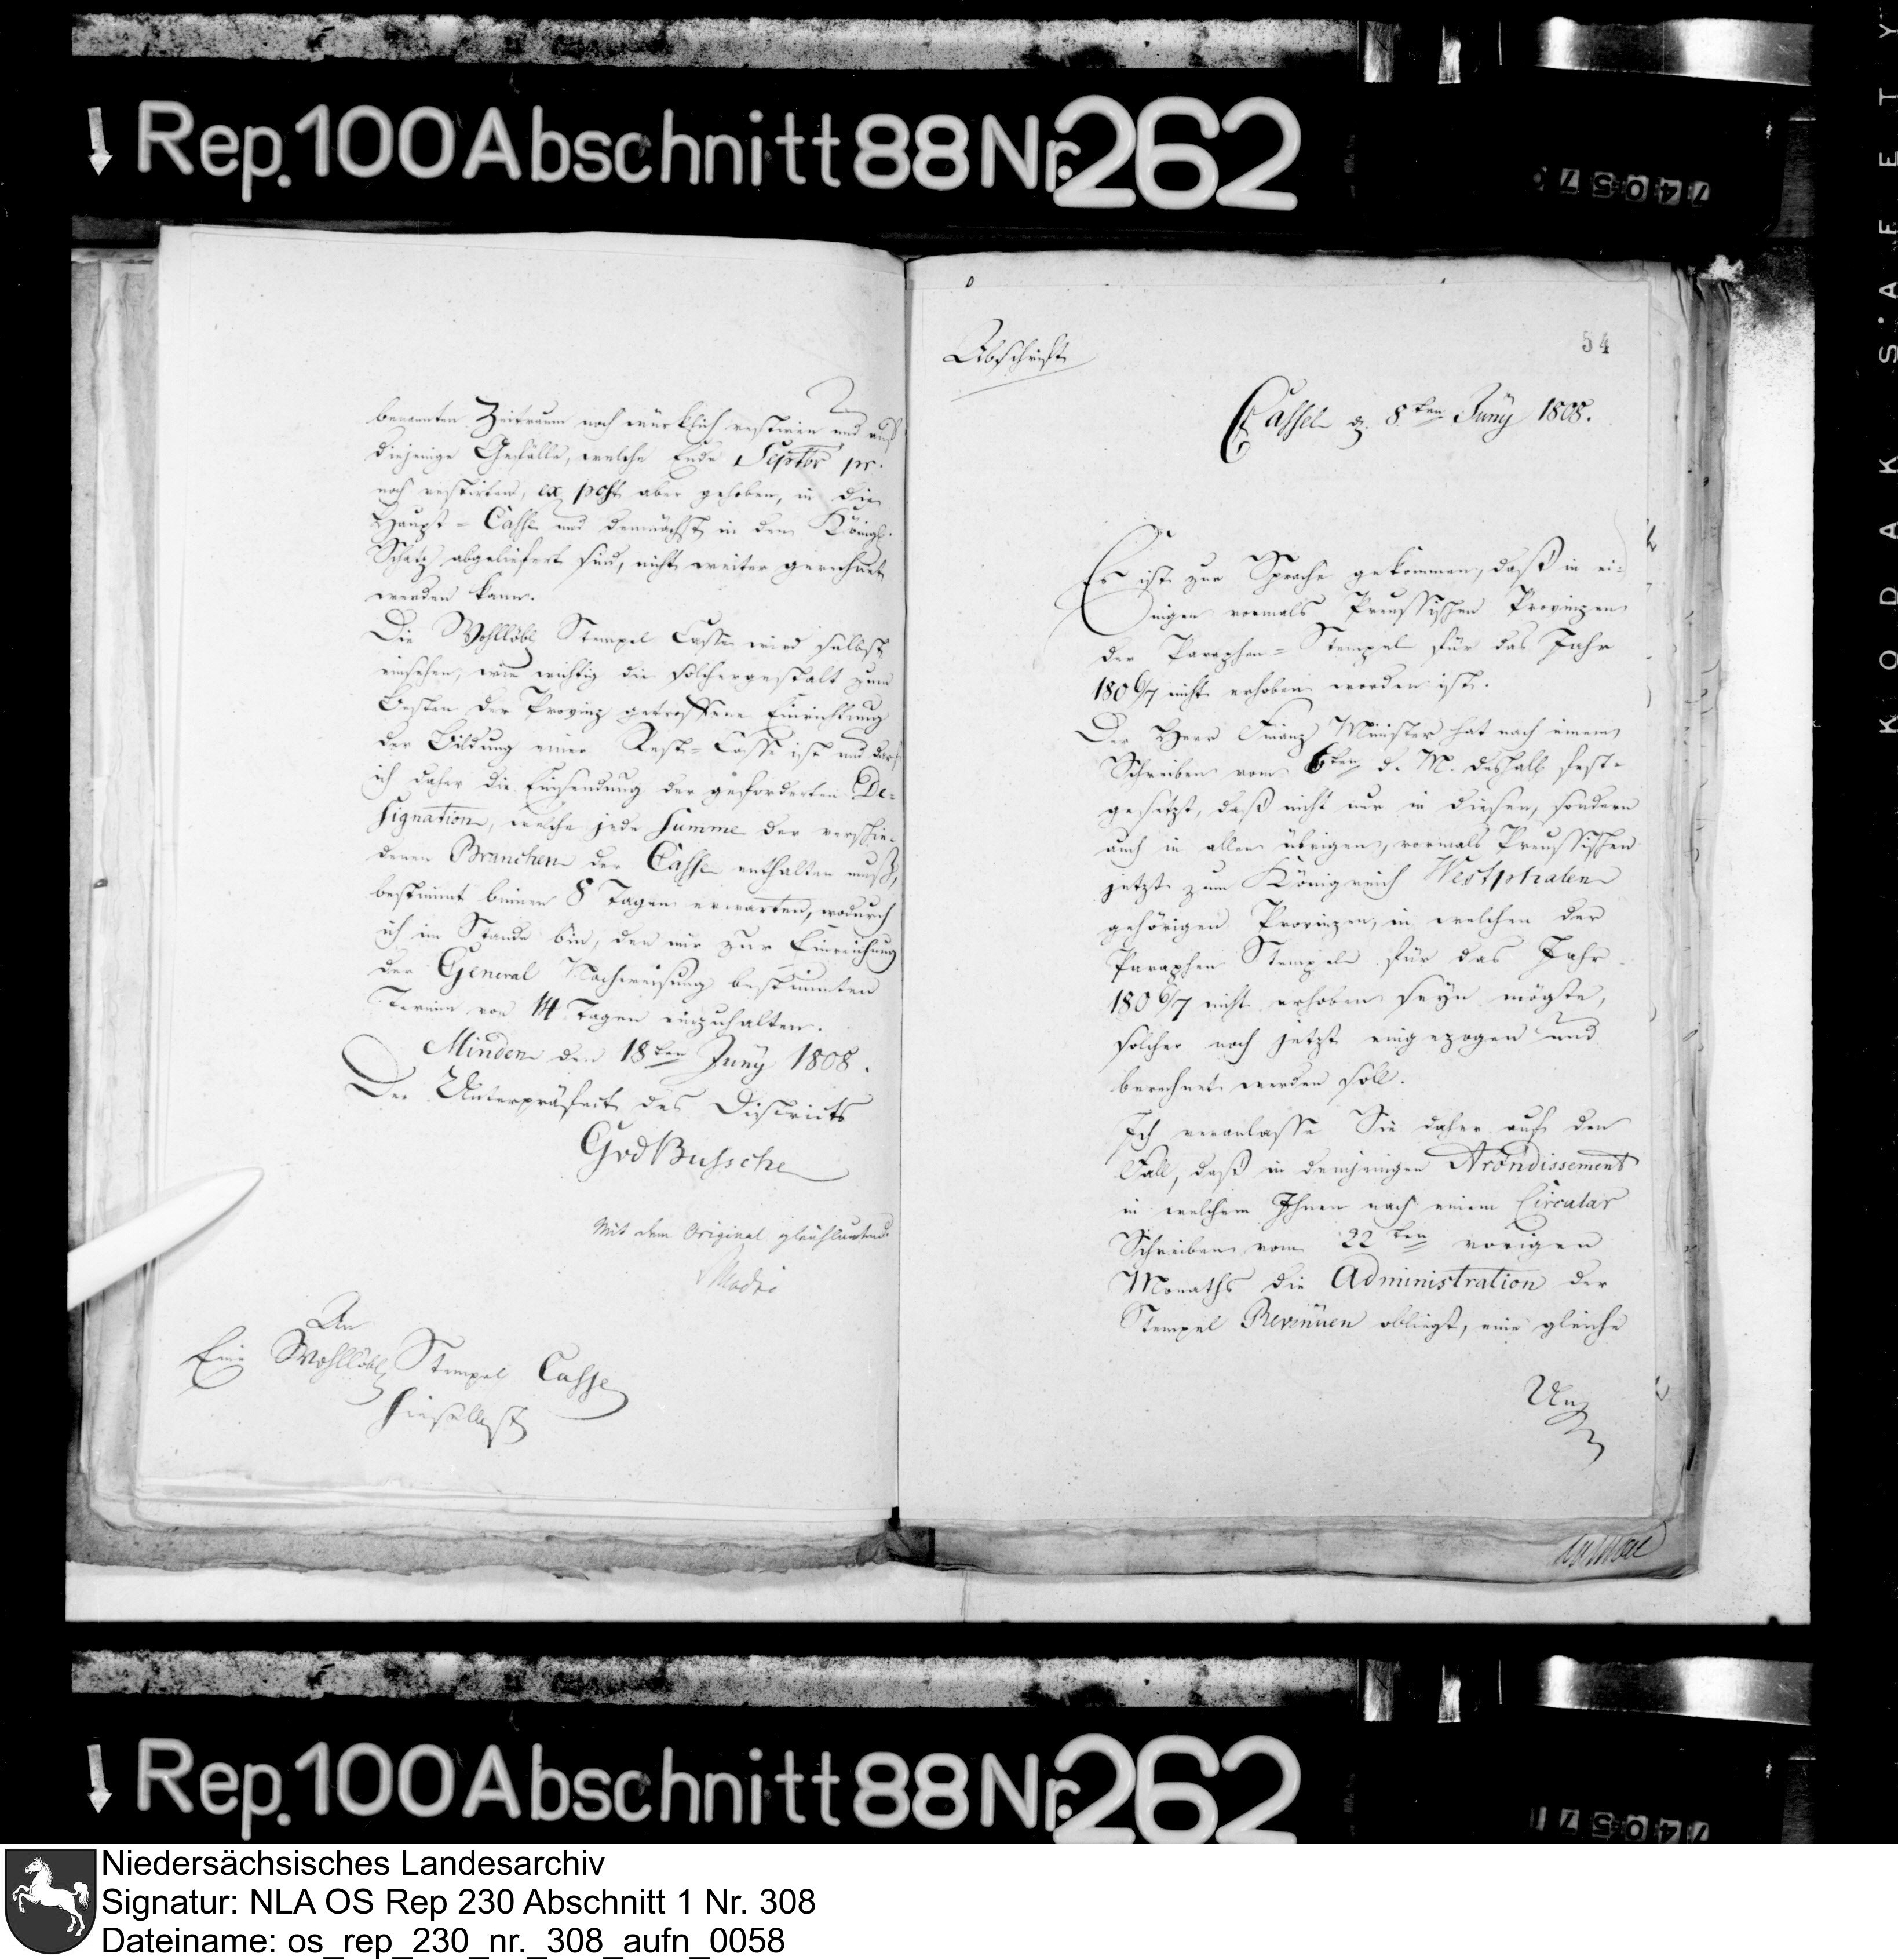 Rep. 100 Abschnitt 88 Nr. 262
benannten Zeitraum noch würklich restiren und auf
diejenige Gefälle, welche Ende Septbr pr.
noch restirten, ex post aber gehoben, in die
Haupt-Casse und demnächst in den Königl.
Schatz abgeliefert sind, nicht weiter gerechnet
werden kann.
Die Wohllöbl Stempel Casse wird selbst
einsehen, wie wichtig die solchergestalt zum
Besten der Provinz getroffene Einrichtung
der Bildung einer Rest-Casse ist und darf
ich daher die Einsendung der geforderten De-
signation, welche jede Summe der verschie-
denen Branchen der Casse enthalten muß,
bestimmt binnen 8 Tagen erwarten, wodurch
ich im Stande bin, den mir zur Einreichung
der General Nachweisung bestimmten
Termin von 14 Tagen einzuhalten.
Minden den 18ten Juny 1808.
Der Unterpräfect des Districts
GvdBussche
Mit dem Original gleichlautend
An
Eine Wohllöbl Stempel Casse
hieselbst
Abschrift
54
Cassel d. 8ten Juny 1808.
Es ist zur Sprache gekommen, daß in ei-
nigen vormals Preussischen Provinzen
der Paraphen-Stempel für das Jahr
1806/7 nicht erhoben worden ist.
Der Herr Finanz Minister hat nach einem
Schreiben vom 6ten d. M. deshalb fest-
gesetzt, daß nicht nur in diesen, sondern
auch in allen übrigen, vormals Preussischen
jetzt zum Königreich Westphalen
gehörigen Provinzen, in welchen der
Paraphen Stempel für das Jahr
1806/7 nicht erhoben seyn mögte,
solcher noch jetzt eingezogen und
berechnet werden soll.
Ich veranlasse Sie daher auf den
Fall, daß in demjenigen Arondissement
in welchem Ihnen nach einem Circular
Schreiben vom 22ten vorigen
Monaths die Administration der
Stempel Revenüen obliegt, eine gleiche
Un
Rep. 100 Abschnitt 88 Nr. 262
KODAK SAFETY
Niedersächsisches Landesarchiv
Signatur: NLA OS Rep 230 Abschnitt 1 Nr. 308
Dateiname: os_rep_230_nr._308_aufn_0058